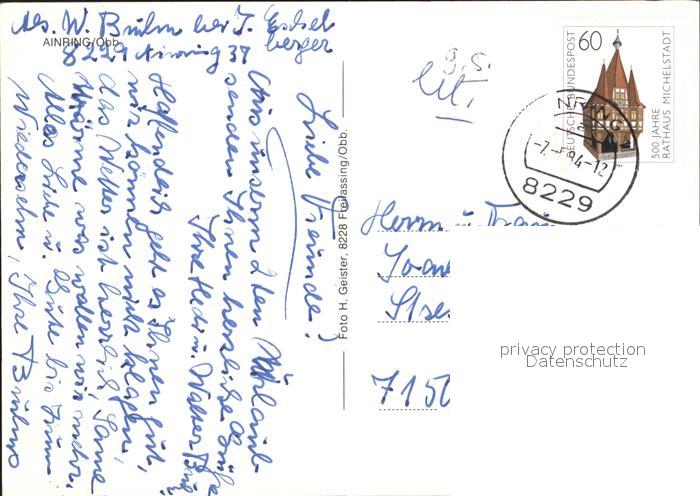 Abs. W. Bruhn bei J. Eschel
berger
AINRING/Obb.
8229 Ainring 37
Liebe Freunde!
Aus unserm 2ten Urlaub
senden Ihnen herzliche Grüße
Ihre Hedi u. Walter Bruhn
Hoffendlich geht es Ihnen gut,
wir können nicht klagen,
das Wetter ist herrlich, Sonne
Wärme was wollen wir mehr.
Alles Liebe u. Gute bis zum
Wiedersehn, Ihre Bruhns
Foto H. Geister, 8228 Freilassing/Obb.
60
DEUTSCHE BUNDESPOST
500 JAHRE
RATHAUS MICHELSTADT
8229
Herrn u. Frau
715
privacy protection
Datenschutz